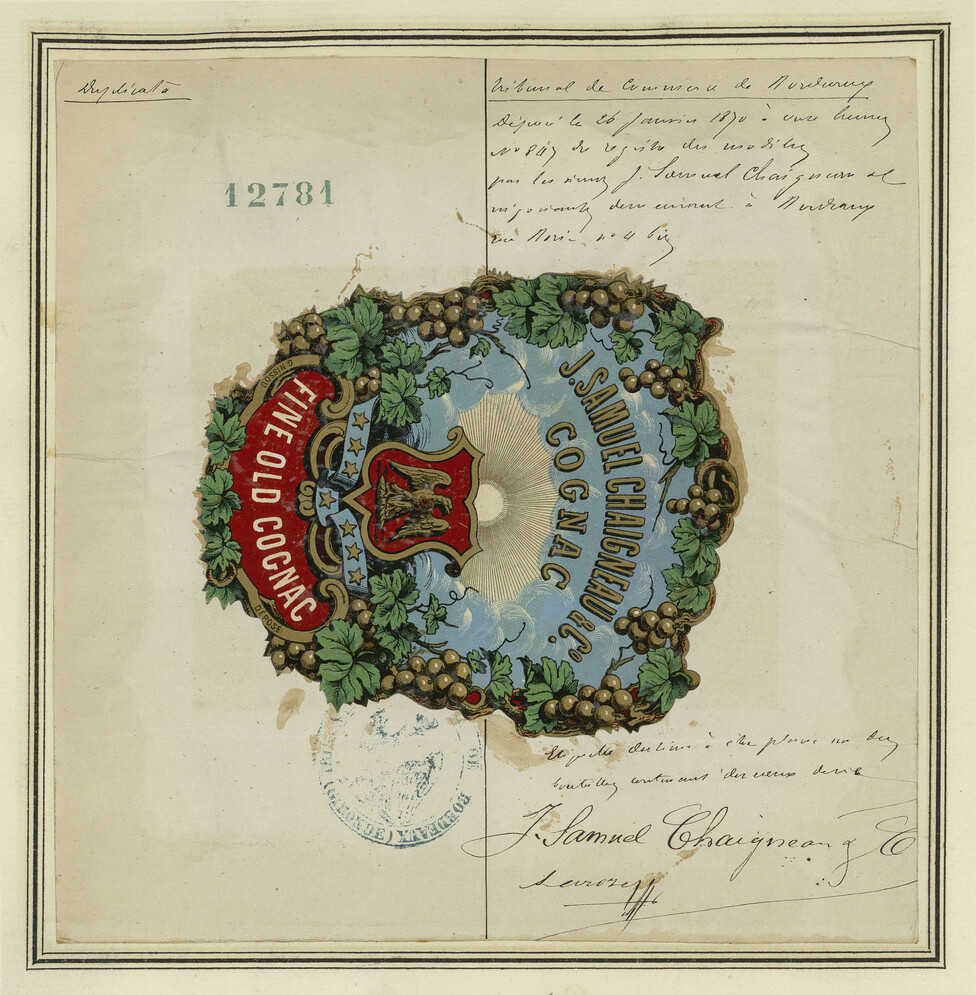 Duplicata
Tribunal de Commerce de Bordeaux
Déposé le 26 Janvier 1870 à onze heures
No 847 du registre des modèles
par les sieurs J. Samuel Chaigneau et
négociants demeurant à Bordeaux
rue no 4 bis
12781
J. SAMUEL CHAIGNEAU & Co.
COGNAC
G. NISSOU
FINE OLD COGNAC
DEPOSÉ
DE BORDEAUX (GIRONDE)
Etiquette destinée à être placée sur des
bouteilles contenant des eaux de vie
J. Samuel Chaigneau & C